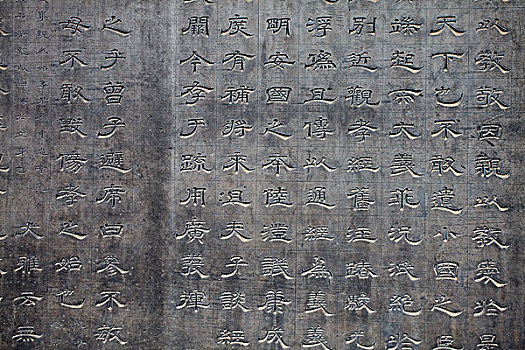 以教敬因親以教愛於是
天下也不敢遺小國之臣
端起而大義乖況泯絕於
別近觀孝經舊註踳駮尤
浮偽且傳以通經為義義
明安國之本陸澄譏康成
庶有補將來且夫子談經
闕今存于疏用廣發揮
之乎曾子避席曰參不敏
母不敢毀傷孝之始也
大雅云無